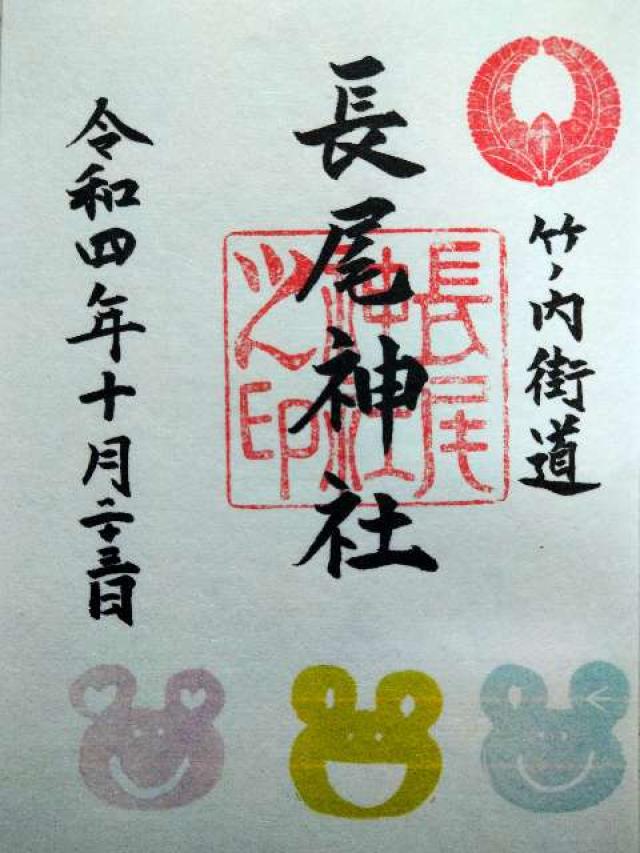 竹ノ内街道
長尾神社
長尾
神社
之印
令和四年十月二十三日